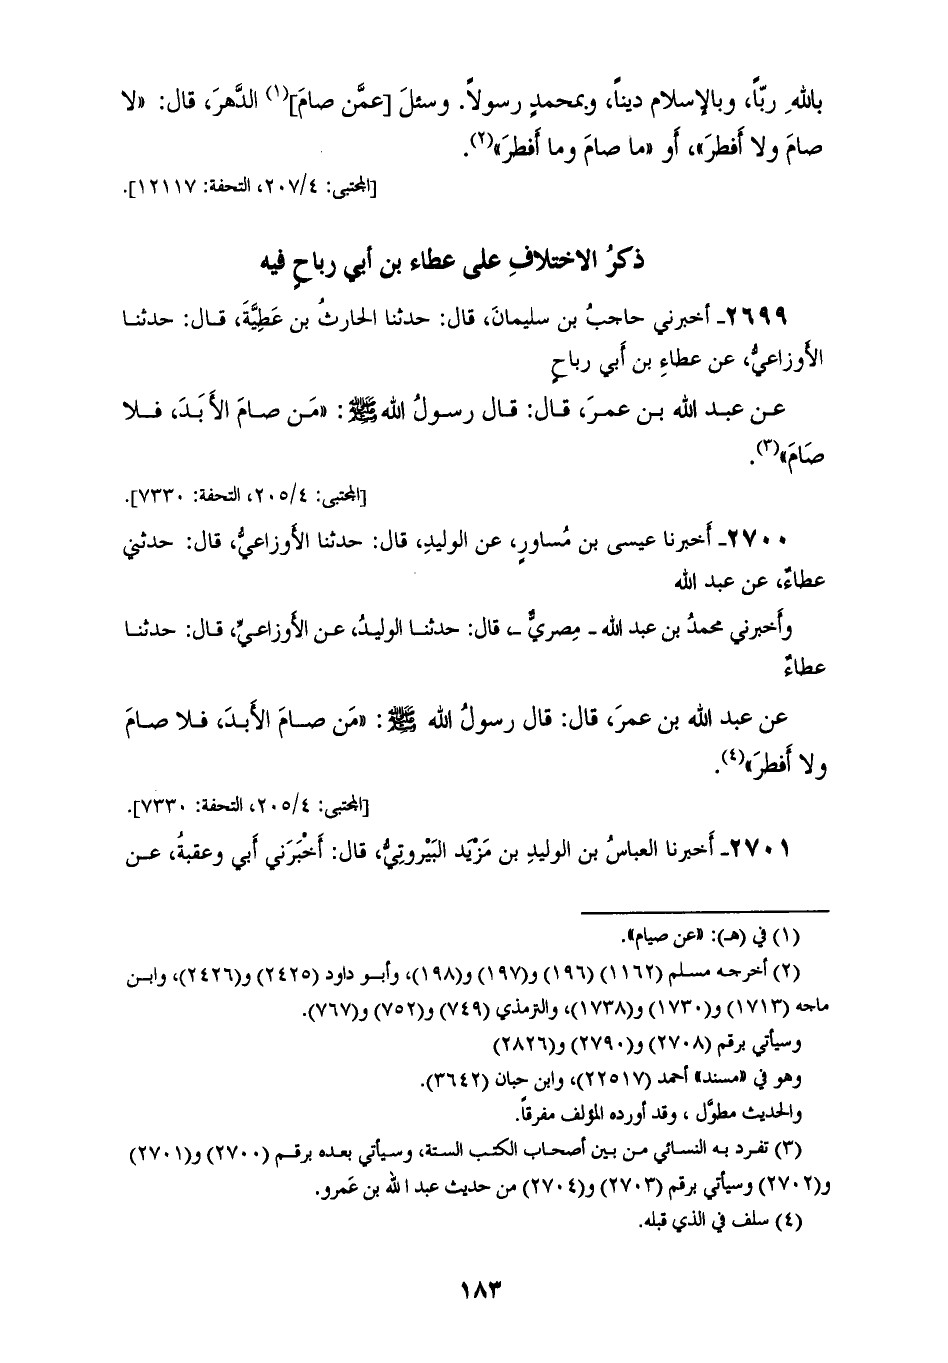 بالله ربّاً، وبالإسلام ديناً، وبمحمدٍ رسولاً. وسئلَ [عمَّن صامَ](١) الدَّهرَ، قال: «لا
صامَ ولا أَفطرَ»، أو «ما صامَ وما أَفطرَ»(٢).
[المجتبى: ٢٠٧/٤، التحفة: ١٢١١٧].
ذكرُ الاختلافِ على عطاء بن أبي رباحٍ فيه
٢٦٩٩ـ أخبرني حاجبُ بن سليمانَ، قال: حدثنا الحارثُ بن عَطِيَّةَ، قـال: حدثنـا
الأَوزاعيُّ، عن عطاءِ بن أَبي رباحٍ
عـن عبـد الله بـن عمـرَ، قـال: قـال رسـولُ الله ﷺ: «مَـن صـامَ الأَبَـدَ، فـلا
صَامَ»(٣).
[المجتبى: ٢٠٥/٤، التحفة: ٧٣٣٠].
٢٧٠٠ـ أَخبرنا عيسى بن مُساورٍ، عن الوليدِ، قال: حدثنا الأَوزاعيُّ، قال: حدثني
عطاءٌ، عن عبد الله
وأَخبرني محمدُ بن عبد الله ـ مِصريٌّ ـ، قال: حدثنـا الوليـدُ، عـن الأَوزاعـيِّ، قـال: حدثنـا
عطاءٌ
عن عبد الله بن عمرَ، قال: قال رسولُ الله ﷺ: «مَن صـامَ الأَبـدَ، فـلا صـامَ
ولا أَفطرَ»(٤).
[المجتبى: ٢٠٥/٤، التحفة: ٧٣٣٠].
٢٧٠١ـ أَخبرنا العباسُ بن الوليدِ بن مَزْيَد البَيْروتِيُّ، قال: أَخْبَرَني أَبي وعقبةُ، عـن
(١) في (هـ): «عن صيام».
(٢) أخرجـه مسـلم (١١٦٢) (١٩٦) و(١٩٧) و(١٩٨)، وأبـو داود (٢٤٢٥) و(٢٤٢٦)، وابـن
ماجه (١٧١٣) و(١٧٣٠) و(١٧٣٨)، والترمذي (٧٤٩) و(٧٥٢) و(٧٦٧).
وسيأتي برقم (٢٧٠٨) و(٢٧٩٠) و(٢٨٢٦)
وهو في «مسند» أحمد (٢٢٥١٧)، وابن حبان (٣٦٤٢).
والحديث مطوَّل ، وقد أورده المؤلف مفرقاً.
(٣) تفـرد بـه النسـائي مـن بـين أصحـاب الكتـب الستة، وسيأتي بعده برقـم (٢٧٠٠) و(٢٧٠١)
و(٢٧٠٢) وسيأتي برقم (٢٧٠٣) و(٢٧٠٤) من حديث عبد الله بن عَمرو.
(٤) سلف في الذي قبله.
١٨٣